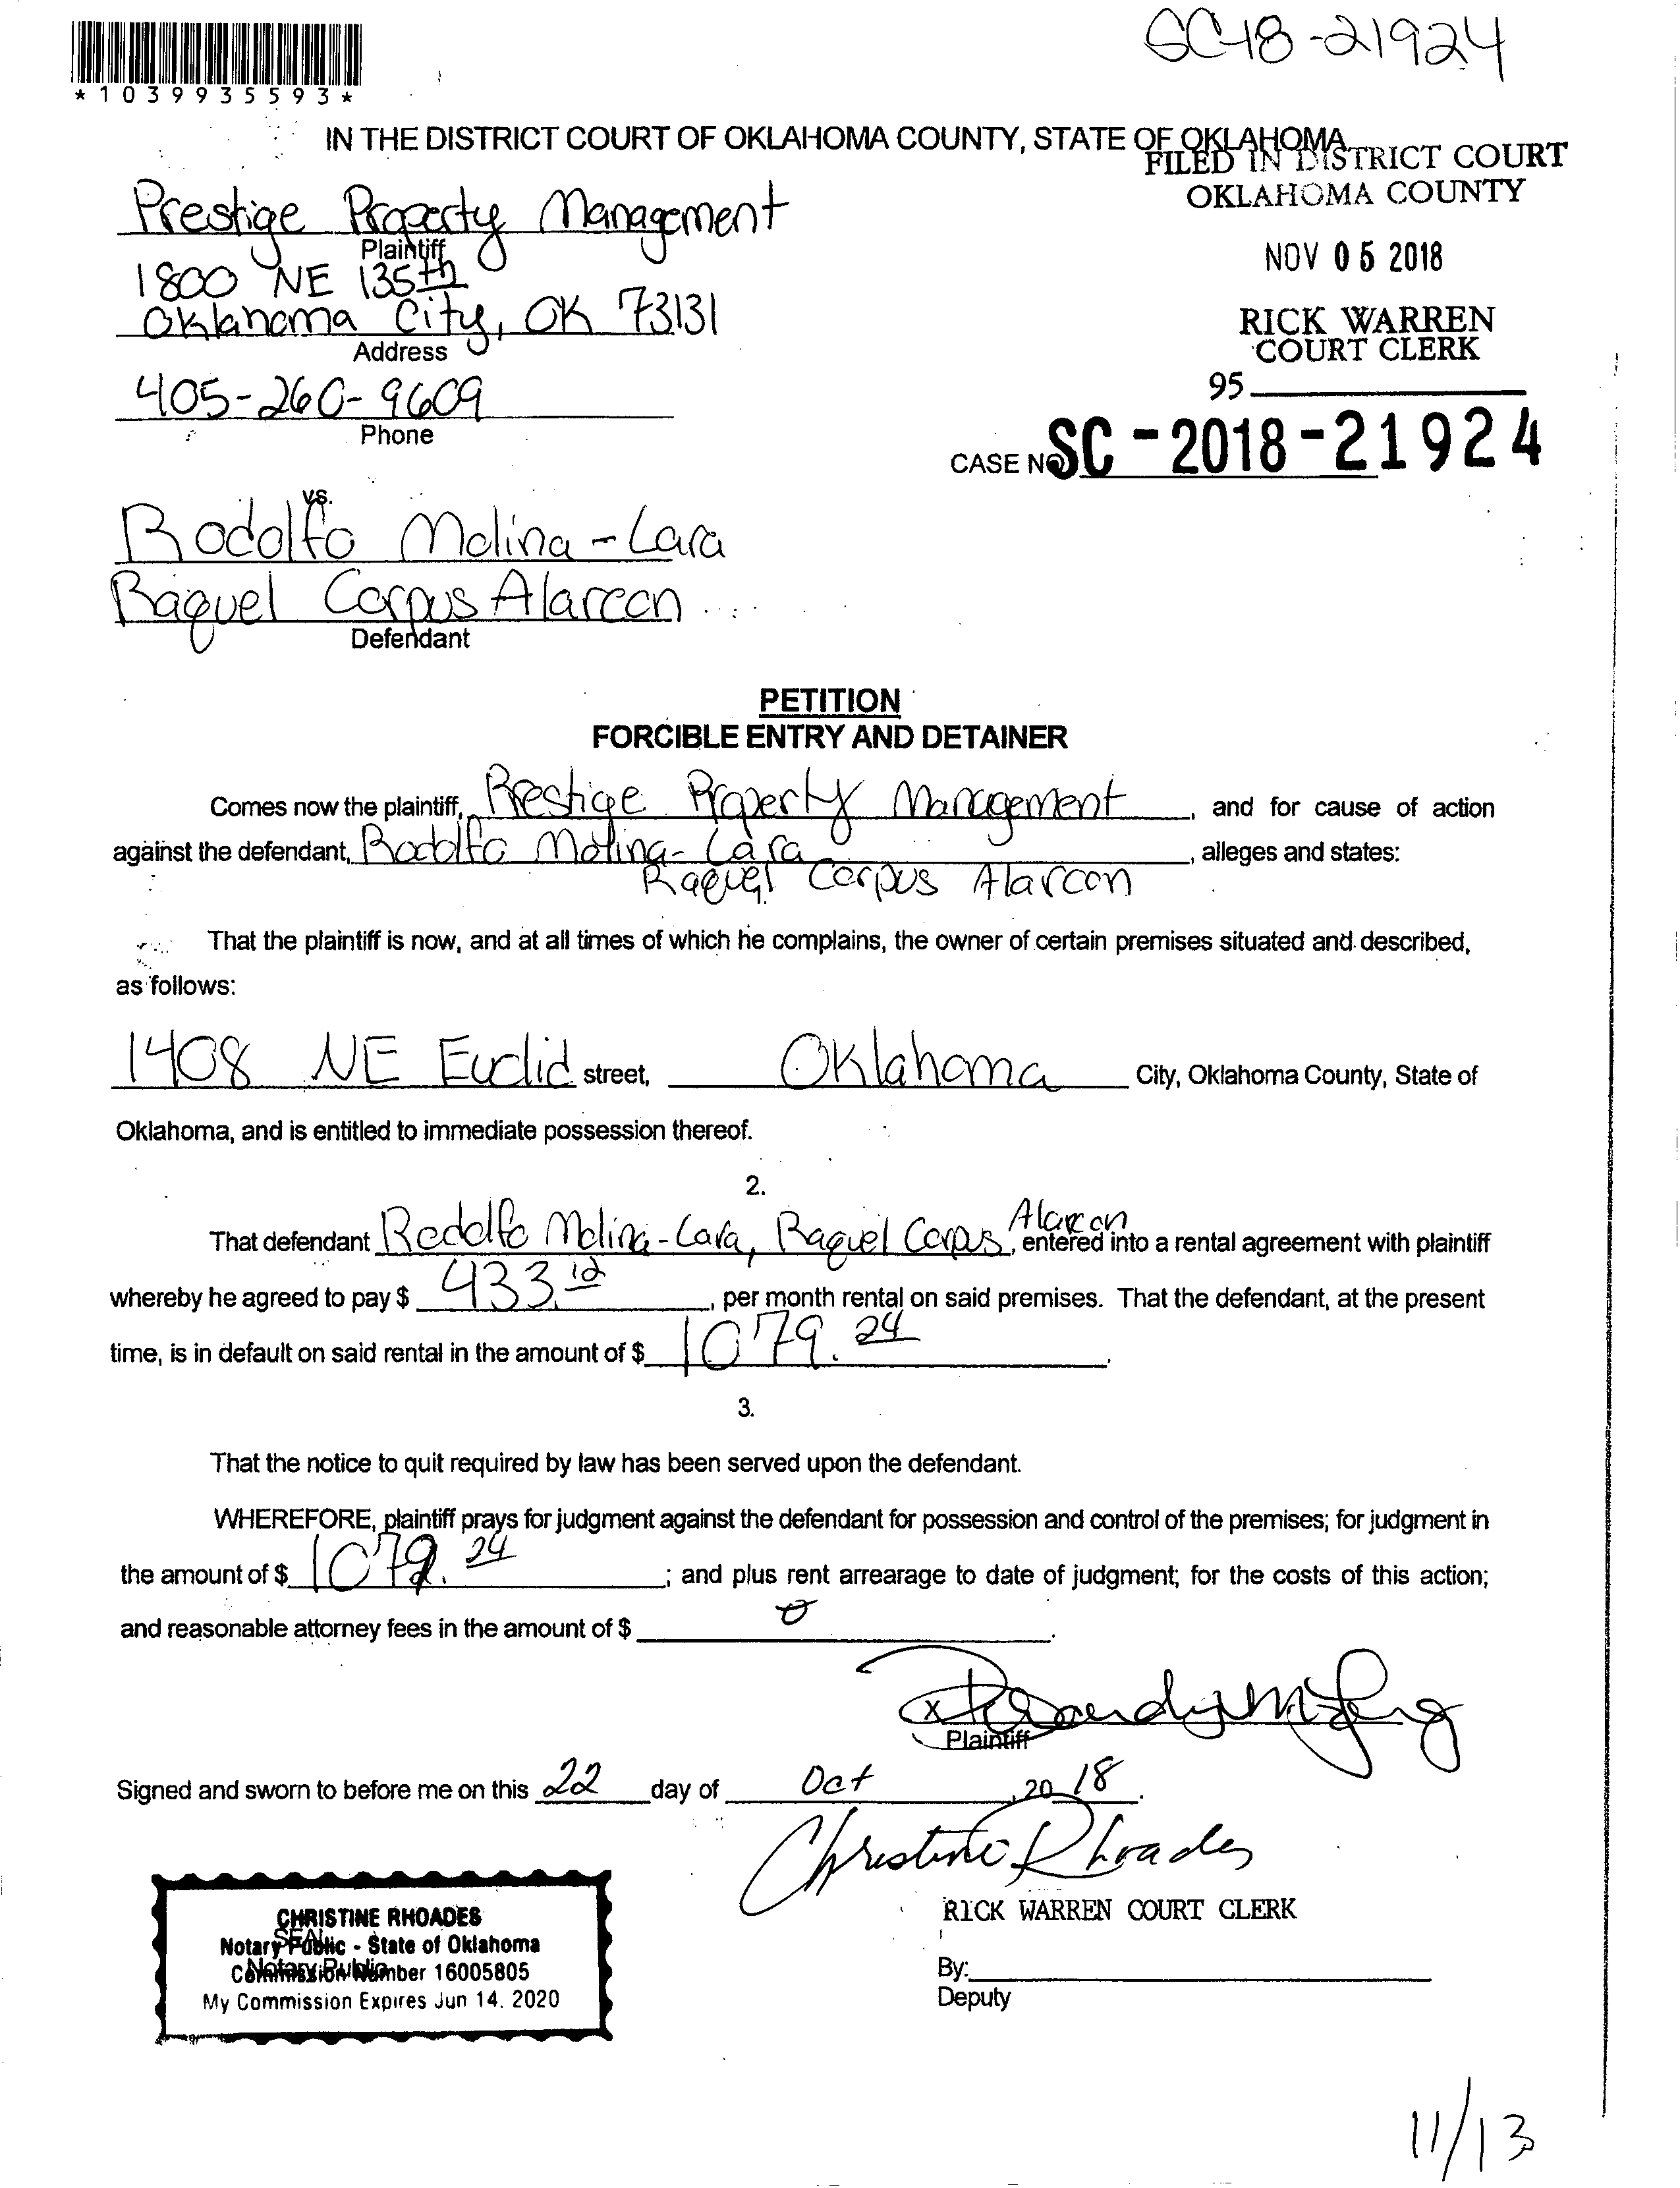 SC-18-21924
*1039935593*
IN THE DISTRICT COURT OF OKLAHOMA COUNTY, STATE OF OKLAHOMA
FILED IN DISTRICT COURT
OKLAHOMA COUNTY
NOV 05 2018
RICK WARREN
COURT CLERK
95
CASE NO. SC-2018-21924
Prestige Property Management
Plaintiff
1800 NE 135th
Oklahoma City, OK 73131
Address
405-260-9609
Phone
vs.
Rodolfo Molina-Lara
Raquel Corpus Alarcon
Defendant
PETITION
FORCIBLE ENTRY AND DETAINER
Comes now the plaintiff, Prestige Property Management, and for cause of action
against the defendant, Rodolfo Molina-Lara, alleges and states:
Raquel Corpus Alarcon
That the plaintiff is now, and at all times of which he complains, the owner of certain premises situated and described,
as follows:
1408 NE Euclid street, Oklahoma City, Oklahoma County, State of
Oklahoma, and is entitled to immediate possession thereof.
2.
That defendant Rodolfo Molina-Lara, Raquel Corpus Alarcon, entered into a rental agreement with plaintiff
whereby he agreed to pay $ 433.12, per month rental on said premises. That the defendant, at the present
time, is in default on said rental in the amount of $ 1079.24.
3.
That the notice to quit required by law has been served upon the defendant.
WHEREFORE, plaintiff prays for judgment against the defendant for possession and control of the premises; for judgment in
the amount of $ 1079.24; and plus rent arrearage to date of judgment; for the costs of this action;
and reasonable attorney fees in the amount of $ 0.
X
Plaintiff
Signed and sworn to before me on this 22 day of Oct, 20 18.
Christine Rhoades
RICK WARREN COURT CLERK
By:
Deputy
CHRISTINE RHOADES
SEAL
Notary Public - State of Oklahoma
Notary Public
Commission Number 16005805
My Commission Expires Jun 14, 2020
11/13